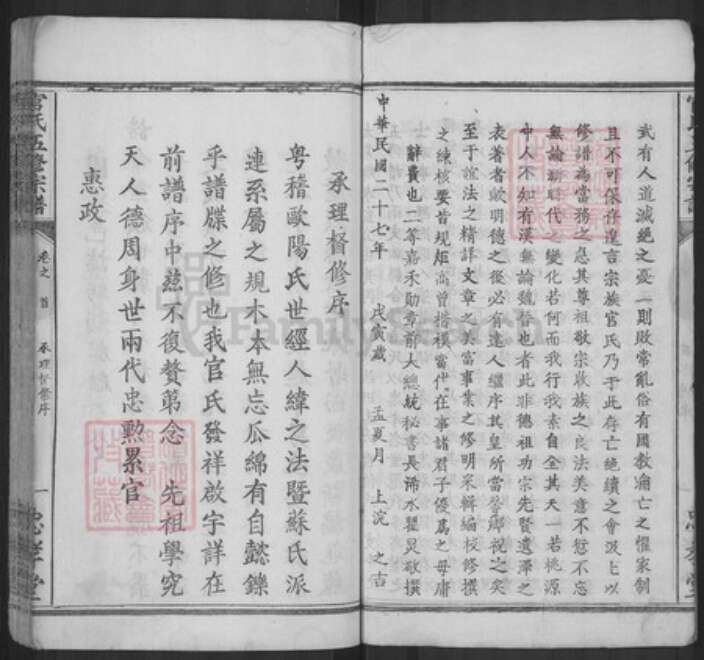 武有人道滅絕之憂一則敗常亂俗有國教淪亡之懼家制
且不可保在遑言宗族官氏乃于此存亡絕續之會汲汲以
修譜為當務之急其尊祖敬宗收族之良法美意不愆不忘
無論時代之變化若何而我行我素自全其天一若桃源
中人不知有漢無論魏晉也者此非德祖功宗先賢遺澤之
表著者歟明德之後必有達人繼序其皇所當馨香祝之矣
至于誼法之精詳文章之美富事業之修明采輯編校修撰
之練核要皆規矩高曾楷模當代在事諸君子優為之毋庸
辭費也二等嘉禾勳章前大總統秘書長浠水瞿炅敬撰
中華民國二十七年 戊寅歲 孟夏月 上浣 之吉
承理督修序
粵稽歐陽氏世經人緯之法暨蘇氏派
連系屬之規木本無忘瓜綿有自懿鑠
乎譜牒之修也我官氏發祥啟宇詳在
前譜序中茲不復贅第念 先祖學究
天人德周身世兩代忠勳累官
惠政
官氏五修宗譜
卷之首
承理督修序
一
忠孝堂